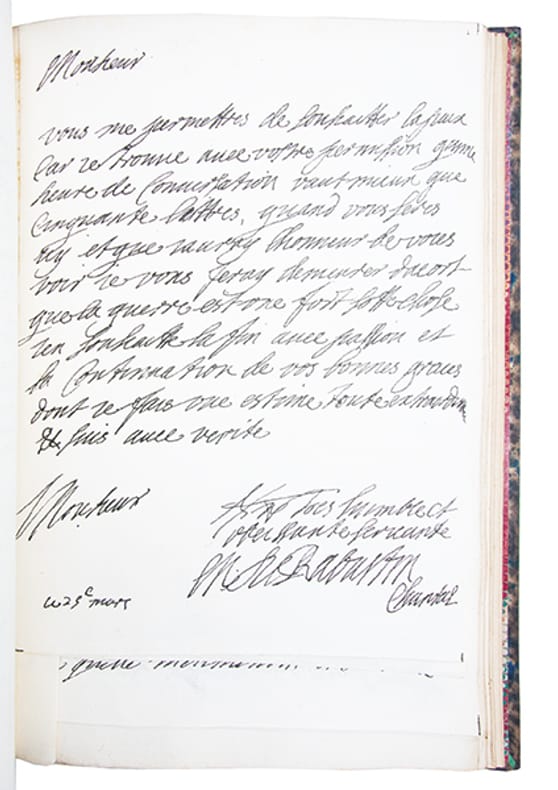 Monsieur
vous me permettres de souhaitter la paix
car ie trouue auec vostre permission qu'une
heure de Conuersation vaut mieux que
Cinquante lettres, quand vous seres
icy et que iauray lhonneur de vous
voir ie vous feray demeurer dacort
que la guerre est une fort sotte chose
ien souhaitte la fin auec passion et
la Continuation de vos bonnes graces
dont ie fais vne estime toute extraordin
& suis auec verité
Monsieur
tres humble et
obeissante seruante
M de Rabutin
Chantal
ce 25e mars